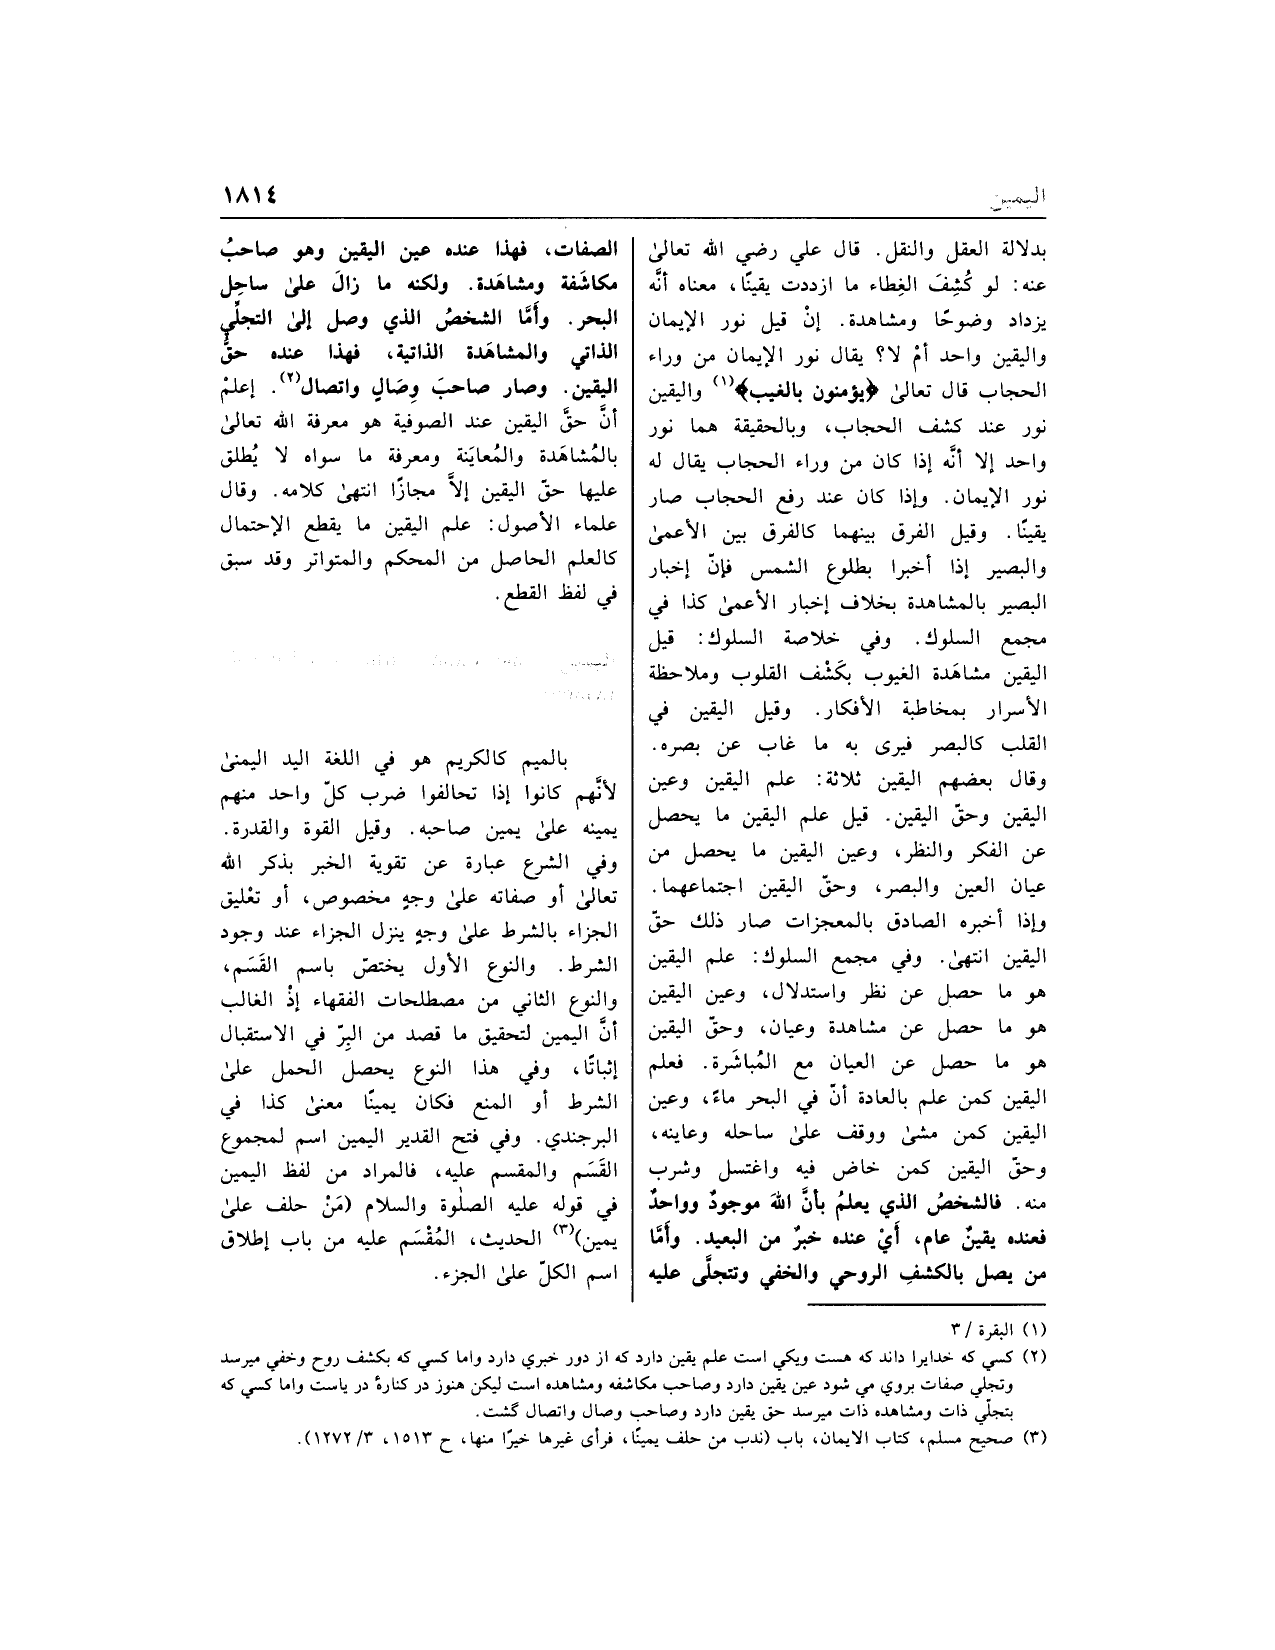 اليمين
١٨١٤
بدلالة العقل والنقل. قال علي رضي الله تعالىٰ
عنه: لو كُشِفَ الغِطاء ما ازددت يقينًا، معناه أنَّه
يزداد وضوحًا ومشاهدة. إنْ قيل نور الإيمان
واليقين واحد أمْ لا؟ يقال نور الإيمان من وراء
الحجاب قال تعالىٰ ﴿يؤمنون بالغيب﴾(١) واليقين
نور عند كشف الحجاب، وبالحقيقة هما نور
واحد إلا أنَّه إذا كان من وراء الحجاب يقال له
نور الإيمان. وإذا كان عند رفع الحجاب صار
يقينًا. وقيل الفرق بينهما كالفرق بين الأعمىٰ
والبصير إذا أخبرا بطلوع الشمس فإنّ إخبار
البصير بالمشاهدة بخلاف إخبار الأعمىٰ كذا في
مجمع السلوك. وفي خلاصة السلوك: قيل
اليقين مشاهَدة الغيوب بكَشْف القلوب وملاحظة
الأسرار بمخاطبة الأفكار. وقيل اليقين في
القلب كالبصر فيرى به ما غاب عن بصره.
وقال بعضهم اليقين ثلاثة: علم اليقين وعين
اليقين وحقّ اليقين. قيل علم اليقين ما يحصل
عن الفكر والنظر، وعين اليقين ما يحصل من
عيان العين والبصر، وحقّ اليقين اجتماعهما.
وإذا أخبره الصادق بالمعجزات صار ذلك حقّ
اليقين انتهىٰ. وفي مجمع السلوك: علم اليقين
هو ما حصل عن نظر واستدلال، وعين اليقين
هو ما حصل عن مشاهدة وعيان، وحقّ اليقين
هو ما حصل عن العيان مع المُباشَرة. فعلم
اليقين كمن علم بالعادة أنّ في البحر ماءً، وعين
اليقين كمن مشىٰ ووقف علىٰ ساحله وعاينه،
وحقّ اليقين كمن خاض فيه واغتسل وشرب
منه. فالشخصُ الذي يعلمُ بأنَّ اللهَ موجودٌ وواحدٌ
فعنده يقينٌ عام، أيْ عنده خبرٌ من البعيد. وأمَّا
من يصل بالكشفِ الروحي والخفي وتتجلَّى عليه
الصفات، فهذا عنده عين اليقين وهو صاحبُ
مكاشَفة ومشاهَدة. ولكنه ما زالَ علىٰ ساحِل
البحر. وأمَّا الشخصُ الذي وصل إلىٰ التجلِّي
الذاتي والمشاهَدة الذاتية، فهذا عنده حقُّ
اليقين. وصار صاحبَ وِصَالٍ واتصال(٢). إعلمْ
أنَّ حقَّ اليقين عند الصوفية هو معرفة الله تعالىٰ
بالمُشاهَدة والمُعاينَة ومعرفة ما سواه لا يُطلق
عليها حقّ اليقين إلاَّ مجازًا انتهىٰ كلامه. وقال
علماء الأصول: علم اليقين ما يقطع الإحتمال
كالعلم الحاصل من المحكم والمتواتر وقد سبق
في لفظ القطع.
بالميم كالكريم هو في اللغة اليد اليمنىٰ
لأنَّهم كانوا إذا تحالفوا ضرب كلّ واحد منهم
يمينه علىٰ يمين صاحبه. وقيل القوة والقدرة.
وفي الشرع عبارة عن تقوية الخبر بذكر الله
تعالىٰ أو صفاته علىٰ وجهٍ مخصوص، أو تعْليق
الجزاء بالشرط علىٰ وجهٍ ينزل الجزاء عند وجود
الشرط. والنوع الأول يختصّ باسم القَسَم،
والنوع الثاني من مصطلحات الفقهاء إذْ الغالب
أنَّ اليمين لتحقيق ما قصد من البِرّ في الاستقبال
إثباتًا، وفي هذا النوع يحصل الحمل علىٰ
الشرط أو المنع فكان يمينًا معنىٰ كذا في
البرجندي. وفي فتح القدير اليمين اسم لمجموع
القَسَم والمقسم عليه، فالمراد من لفظ اليمين
في قوله عليه الصلٰوة والسلام (مَنْ حلف علىٰ
يمين)(٣) الحديث، المُقْسَم عليه من باب إطلاق
اسم الكلّ علىٰ الجزء.
(١) البقرة / ٣
(٢) كسي كه خدايرا داند كه هست ويكي است علم يقين دارد كه از دور خبري دارد واما كسي كه بكشف روح وخفي ميرسد
وتجلي صفات بروي مي شود عين يقين دارد وصاحب مكاشفه ومشاهده است ليكن هنوز در كنارهٔ در ياست واما كسي كه
بتجلّي ذات ومشاهده ذات ميرسد حق يقين دارد وصاحب وصال واتصال گشت.
(٣) صحيح مسلم، كتاب الايمان، باب (ندب من حلف يمينًا، فرأى غيرها خيرًا منها، ح ١٥١٣، ٣/ ١٢٧٢).